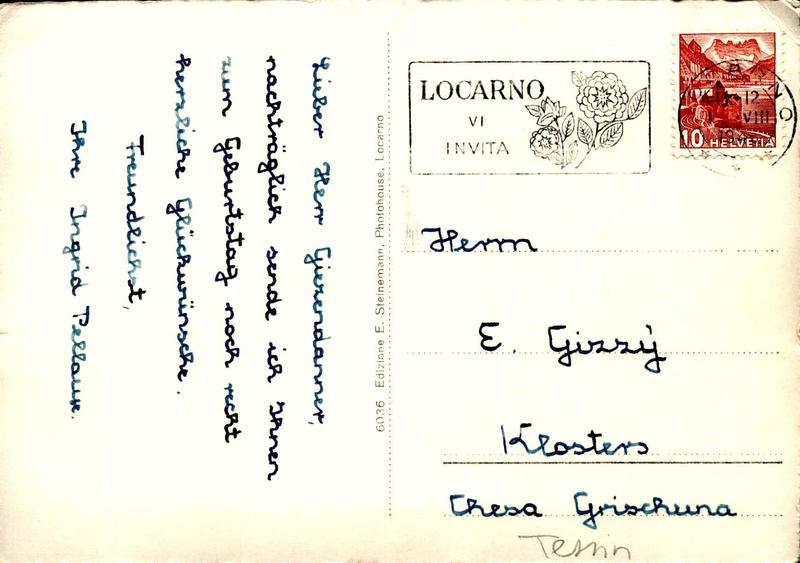 Lieber Herr Giezendanner,
nachträglich sende ich Ihnen
zum Geburtstag noch recht
herzliche Glückwünsche.
Freundlichst,
Ihre Ingrid Pellaux.
6036 Edizione E. Steinemann, Photohouse, Locarno
LOCARNO
VI
INVITA
10 HELVETIA
Herrn
E. Gizzÿ
Klosters
Chesa Grischuna
Tessin